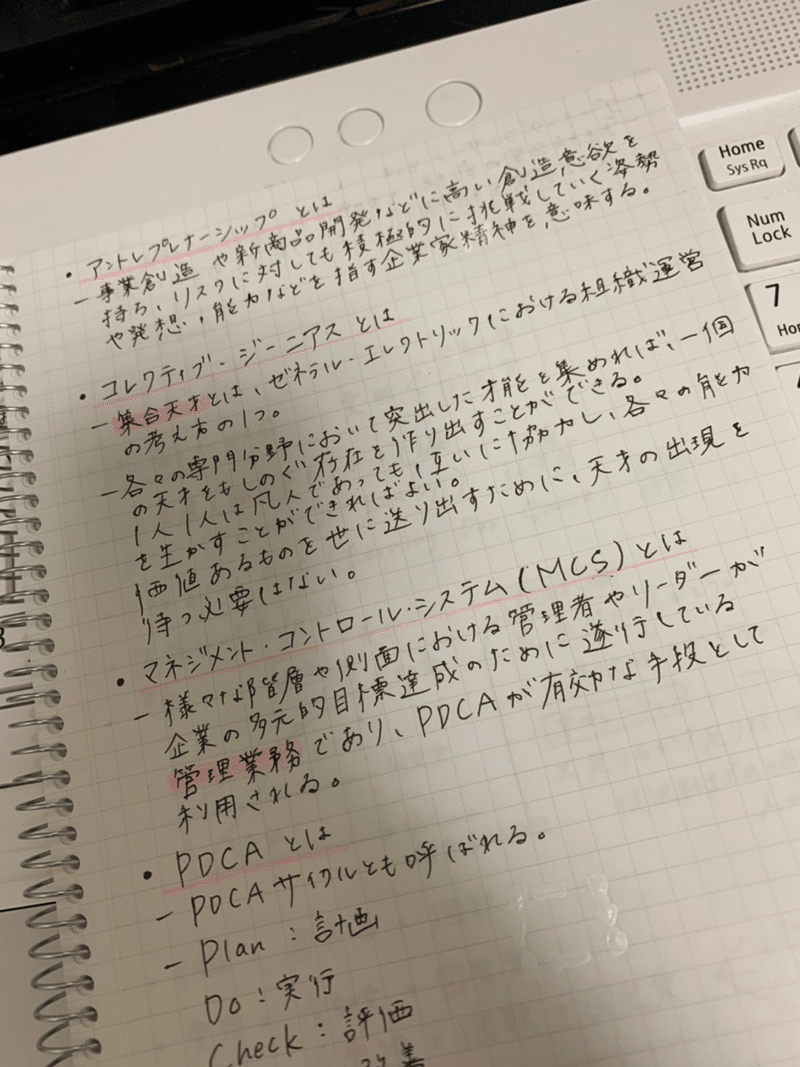 ・アントレプレナーシップ とは
－事業創造 や新商品開発などに高い創造意欲を
持ち、リスクに対しても積極的に挑戦していく姿勢
や発想，能力などを指す企業家精神を意味する。
・コレクティブ・ジーニアス とは
－集合天才とは、ゼネラル・エレクトリックにおける組織運営
の考え方の1つ。
－各々の専門分野において突出した才能を集めれば、一個
の天才をもしのぐ存在を作り出すことができる。
1人1人は凡人であっても互いに協力し、各々の能力
を生かすことができればよい。
価値あるものを世に送り出すために、天才の出現を
待つ必要はない。
・マネジメント・コントロール・システム(MCS)とは
－様々な階層や側面における管理者やリーダーが
企業の多元的目標達成のために遂行している
管理業務であり、PDCAが有効な手段として
利用される。
・PDCA とは
－PDCAサイクルとも呼ばれる。
－Plan：計画
Do：実行
Check：評価
改善
Home
SysRq
Num
Lock
7